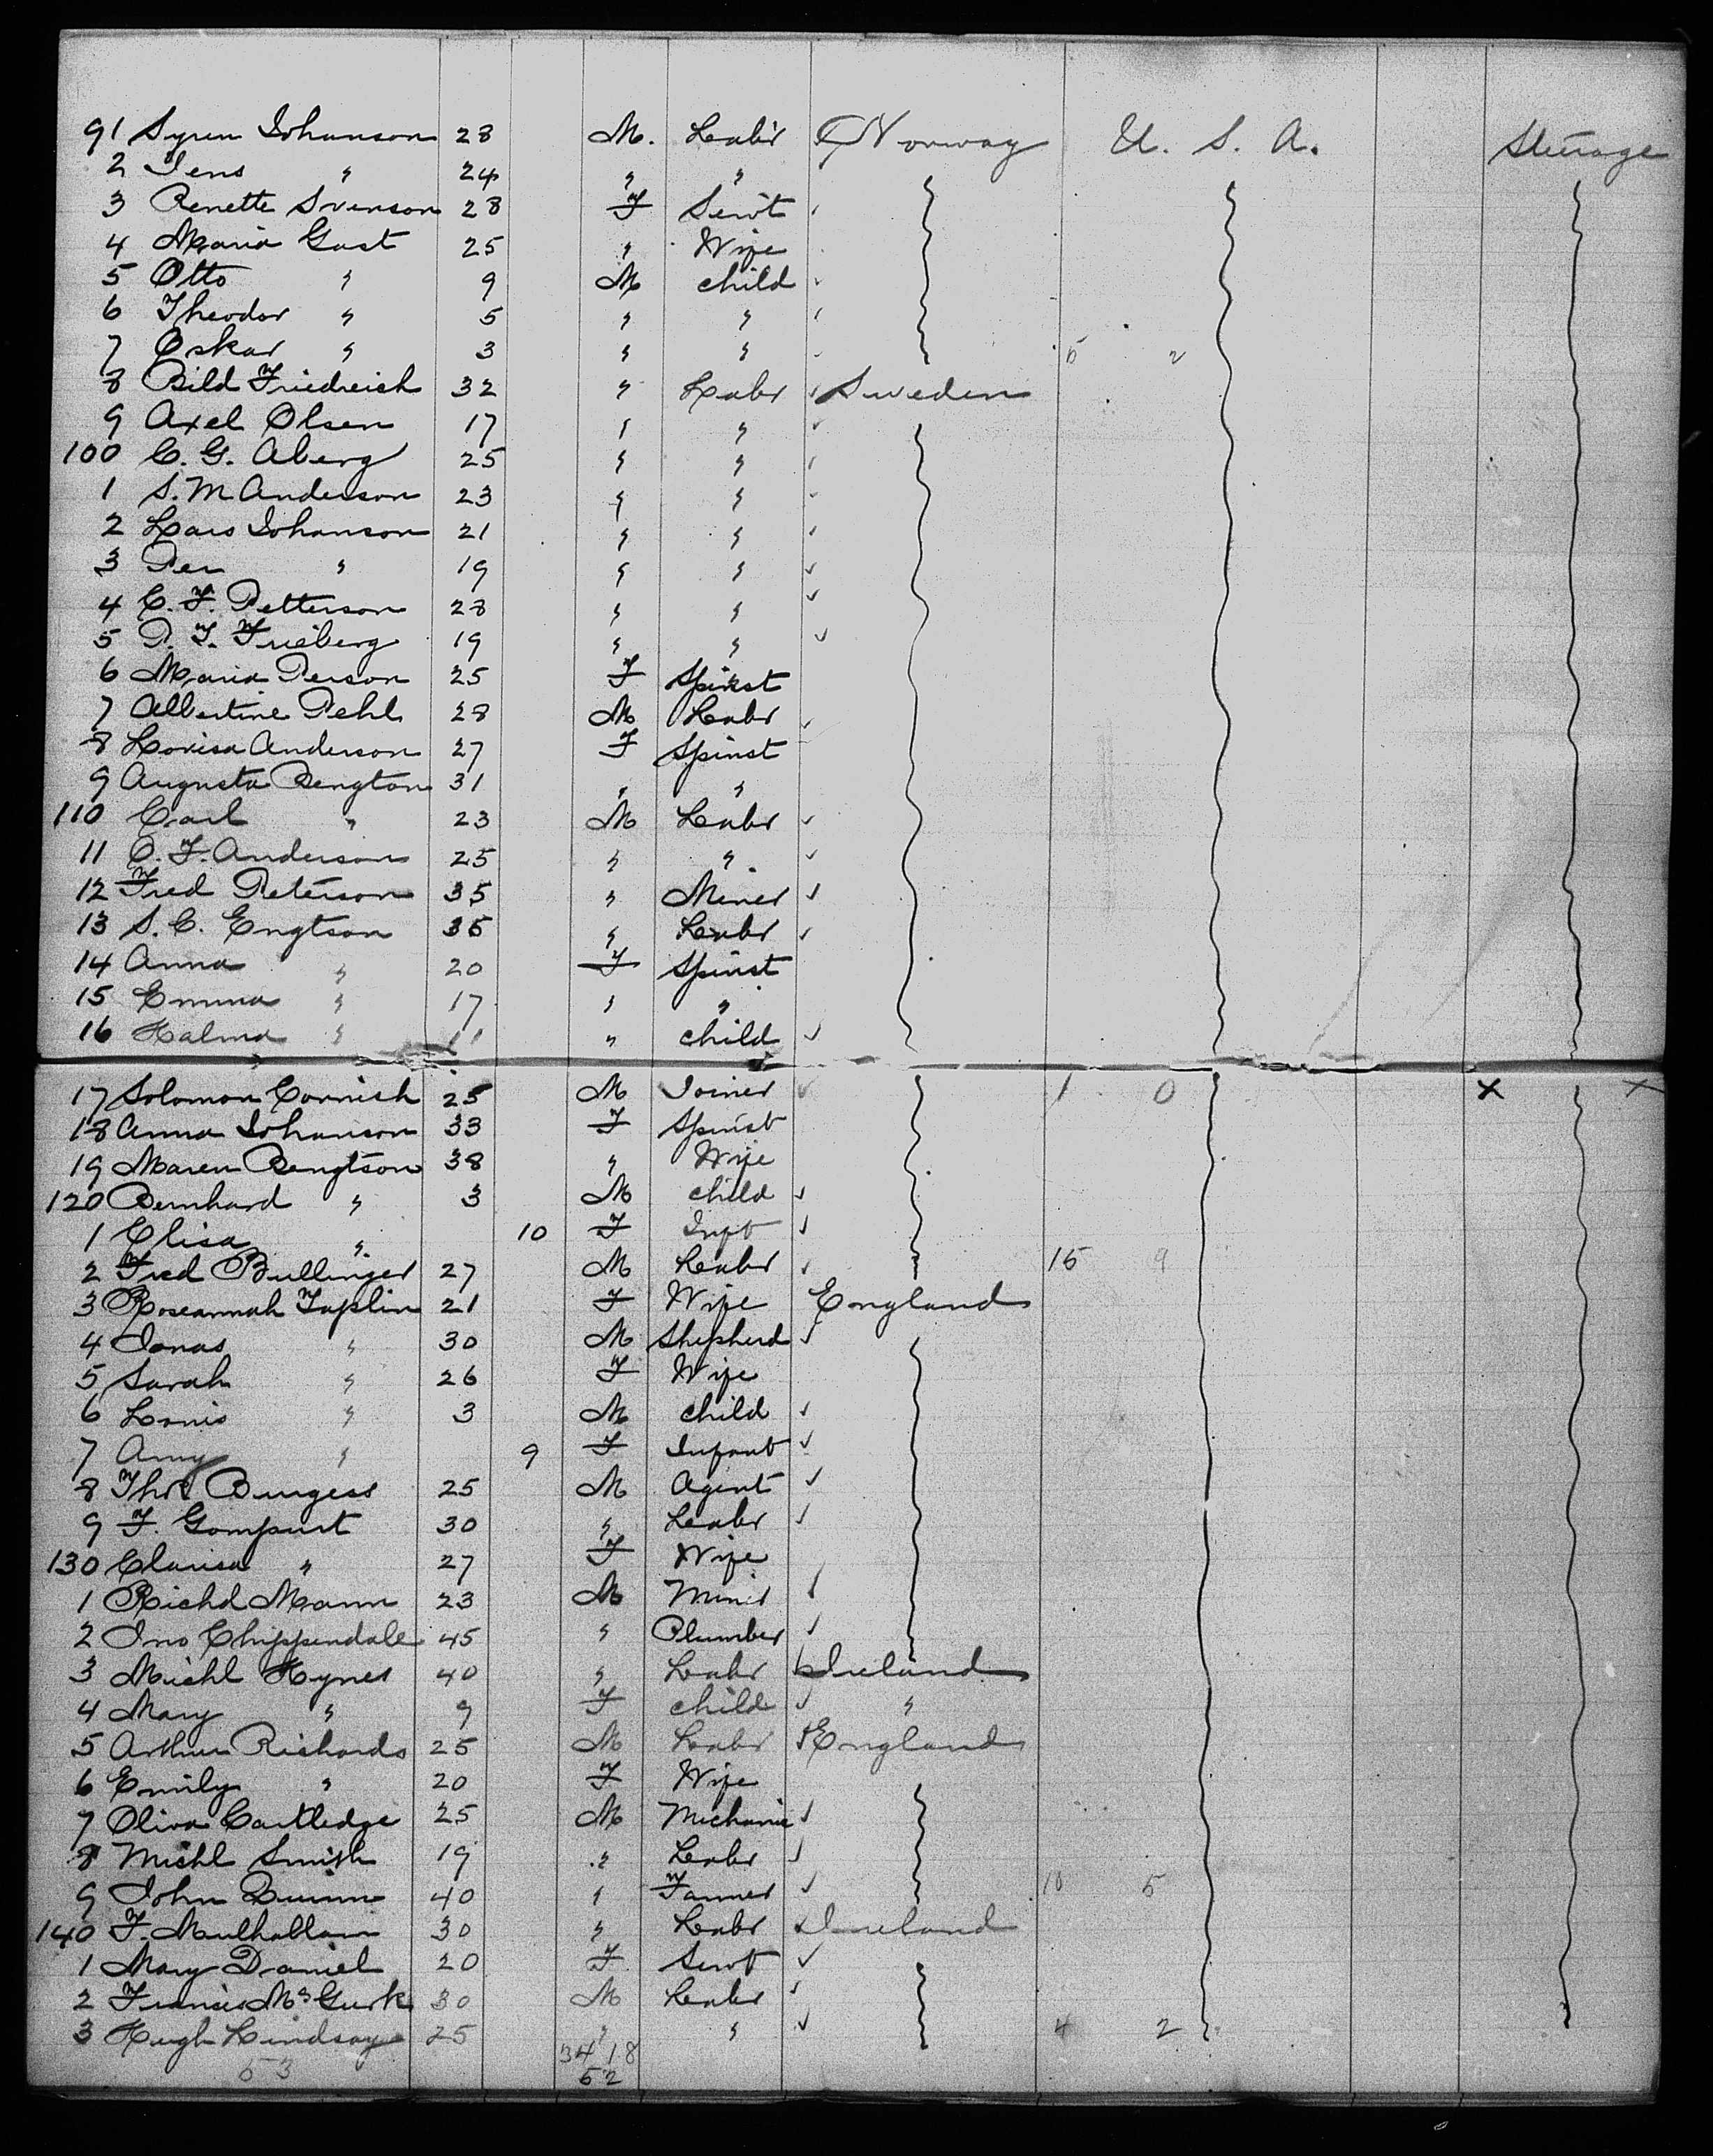 91 Syren Johanson 28 M. Labr Norway U. S. A. Steerage
2 Jens " 24 " "
3 Renette Svenson 28 F Servt
4 Maria Gust 25 " Wife
5 Otto " 9 M child
6 Theodor " 5 " "
7 Oskar " 3 " " 5 2
8 Bild Friedreich 32 " Labr Sweden
9 Axel Olsen 17 " "
100 C. G. Aberg 25 " "
1 S. M Anderson 23 " "
2 Lars Johanson 21 " "
3 Per " 19 " "
4 C. F. Petterson 28 " "
5 P. F. Frieberg 19 " "
6 Maria Person 25 F Spinst
7 Albertine Pehl 28 M Labr
8 Lovisa Anderson 27 F Spinst
9 Augusta Bengtson 31 " "
110 Carl " 23 M Labr
11 C. F. Anderson 25 " "
12 Fred Peterson 35 " Miner
13 S. C. Engtson 35 " Labr
14 Anna " 20 F Spinst
15 Emma " 17 " "
16 Halma " 11 " child
17 Solomon Cornish 25 M Joiner 1 0 x x
18 Anna Johanson 33 F Spinst
19 Maren Bengtson 38 " Wife
120 Bernhard " 3 M child
1 Elisa " 10 F Inft
2 Fred Bullinger 27 M Labr 15 9
3 Roseannah Taplin 21 F Wife England
4 Jonas " 30 M Shepherd
5 Sarah " 26 F Wife
6 Louis " 3 M child
7 Amy " 9 F Infant
8 Thos Burgess 25 M Agent
9 F. Gompert 30 " Labr
130 Clarisa " 27 F Wife
1 Richd Mann 23 M Miner
2 Jno Chippendale 45 " Plumber
3 Michl Hynes 40 " Labr Ireland
4 Mary " 9 F child "
5 Arthur Richards 25 M Labr England
6 Emily " 20 F Wife
7 Oliva Cartledge 25 M Mechanic
8 Michl Smith 19 " Labr
9 John Quinn 40 " Farmer 10 5
140 F. Mulhallam 30 " Labr Ireland
1 Mary Daniel 20 F Servt
2 Francis McGurk 30 M Labr
3 Hugh Lindsay 25 " " 4 2
53 34 18
52